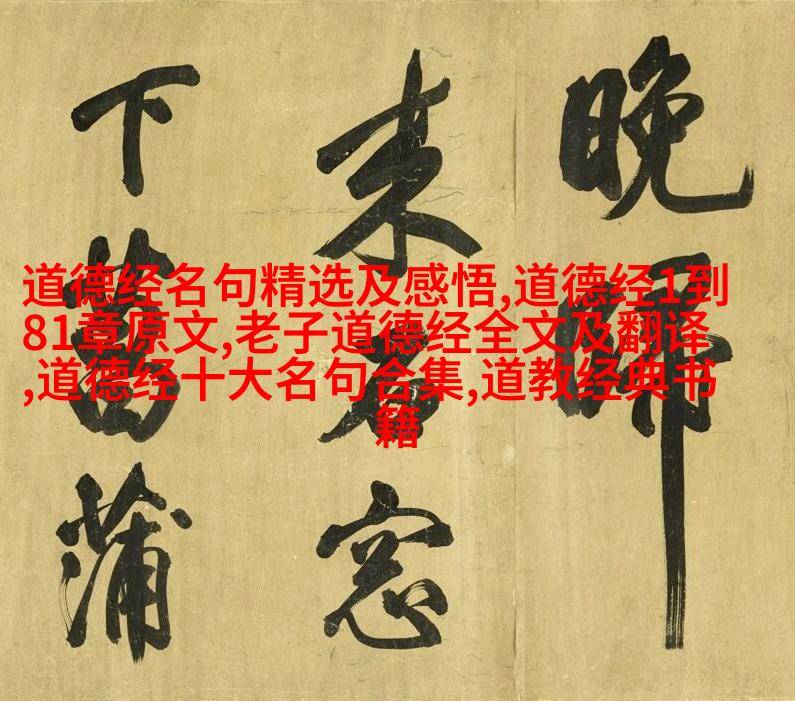 晚
来 窓
下菖蒲
道德经名句精选及感悟,道德经1到
81章原文,老子道德经全文及翻译
,道德经十大名句合集,道教经典书
籍